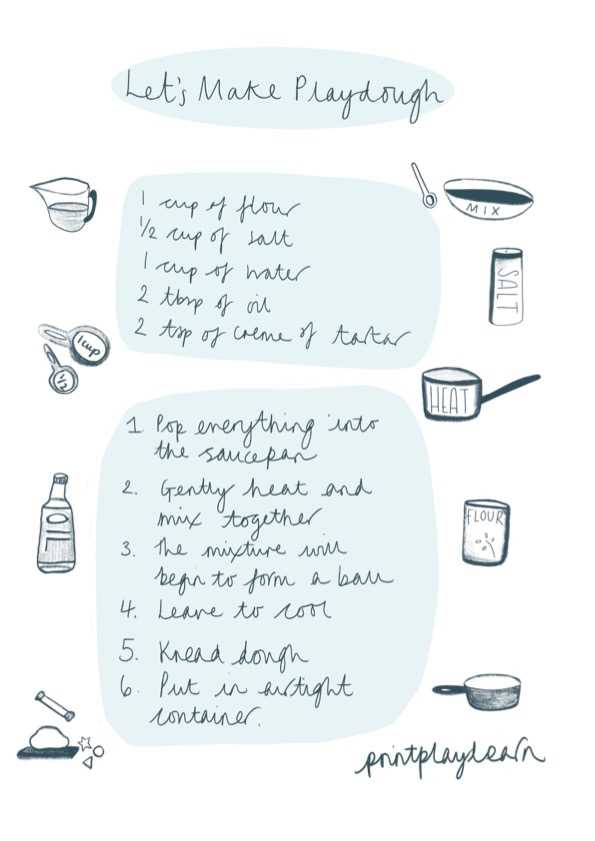 Let's Make Playdough
1 cup of flour
1/2 cup of salt
1 cup of water
2 tbsp of oil
2 tsp of creme of tartar
MIX
SALT
1 cup
1/2
HEAT
1 Pop everything into
the saucepan
2. Gently heat and
mix together
3. The mixture will
begin to form a ball
4. Leave to cool
5. Knead dough
6. Put in airtight
container.
OIL
FLOUR
printplaylearn